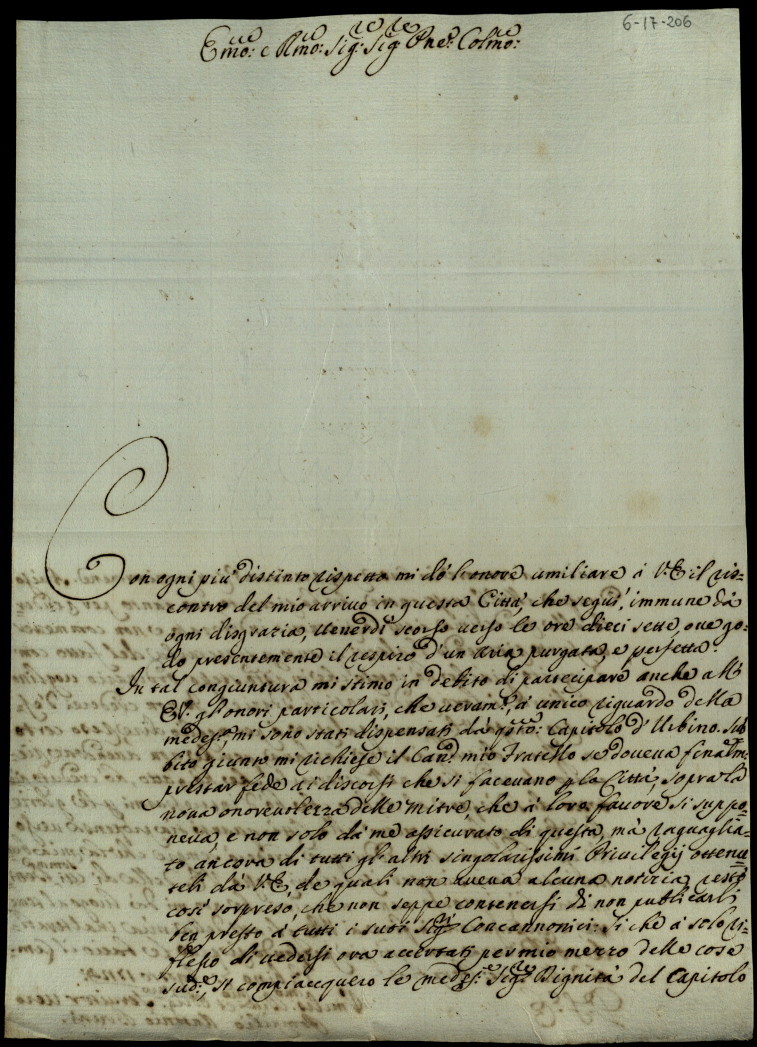 6-17-206
Em̃o: e Rm̃o: Sig:re Sig:re Pne: Colm̃o:
Con ogni più distinto rispetto mi dò l'onore umiliare à V.E. il ris-
contro del mio arrivo in questa Città, che seguì, immune dà
ogni disgrazia, Venerdì scorso verso le ore dieci sette, ove go-
do presentemente il respiro d'un Aria purgata, e perfetta.
In tal congiuntura mi stimo in debito di partecipare anche all'
E.V. gl'onori particolari, che veram:te, à unico riguardo della
medes:, mi sono stati dispensati dà q̃sto: Capitolo d'Urbino. Su-
bito giunto mi richiese il Can: mio Fratello se doveva finalm:
prestar fede ai discorsi che si facevano p la Città, sopra la
nova onorevolezza delle Mitre, che à loro favore si suppo-
neva, e non solo dà me assicurato di questa, mà raguaglia-
to ancora di tutti gl'altri singolarissimi Privilegij ottenu-
teli dà V.E., de quali non aveva alcuna notizia, restò
così sorpreso, che non seppe contenersi di non publicarli
ben presto à tutti i suoi Sig:ri Concannonici: Si che à solo ri-
flesso di vedersi ora accertati per mio mezzo delle cose
sud:e, si compiacquero le medes:e Sig:re Dignità del Capitolo